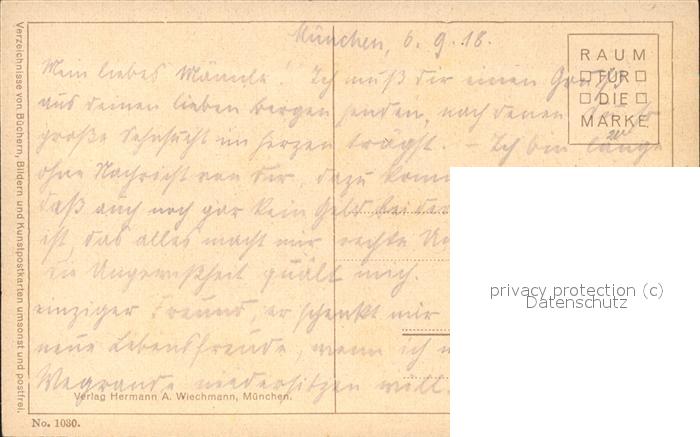 München, 6.9.18.
Mein liebes Männle! Ich muß dir einen Gruß
aus deinen lieben Bergen senden, nach denen du so
große Sehnsucht im Herzen trägst. – Ich bin lange
ohne Nachricht von dir, dazu
daß auch noch gar kein Geld bei dir
ist, das alles macht mir rechte
die Ungewißheit quält mich.
einziger Freund, er schenkt mir
neue Lebensfreude, wenn ich
Wegrande niedersitzen will.
RAUM
FÜR
DIE
MARKE
Verzeichnisse von Büchern, Bildern und Kunstpostkarten umsonst und postfrei.
Verlag Hermann A. Wiechmann, München.
No. 1030.
privacy protection (c)
Datenschutz